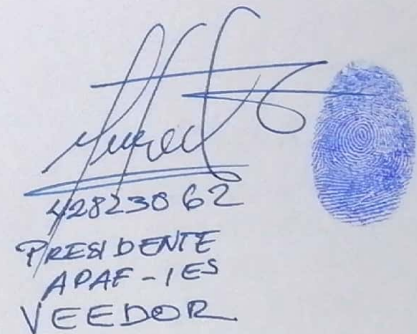 42823062
PRESIDENTE
APAF-IES
VEEDOR